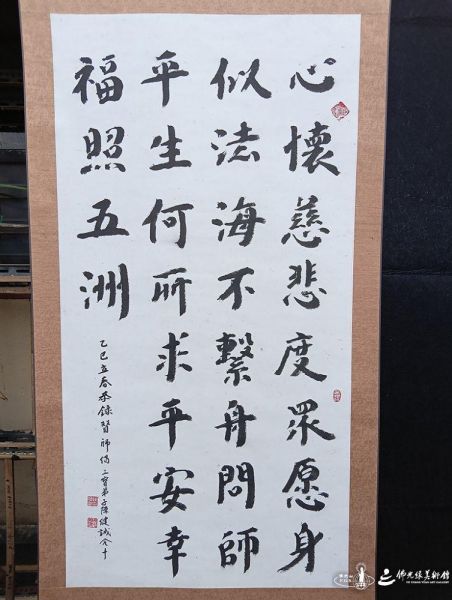 心懷慈悲度眾愿身
似法海不繫舟問師
平生何所求平安幸
福照五洲
乙巳立春恭錄賢師偈 三寶弟子陳健誠合十
佛光緣美術館
FO GUANG YUAN ART GALLERY